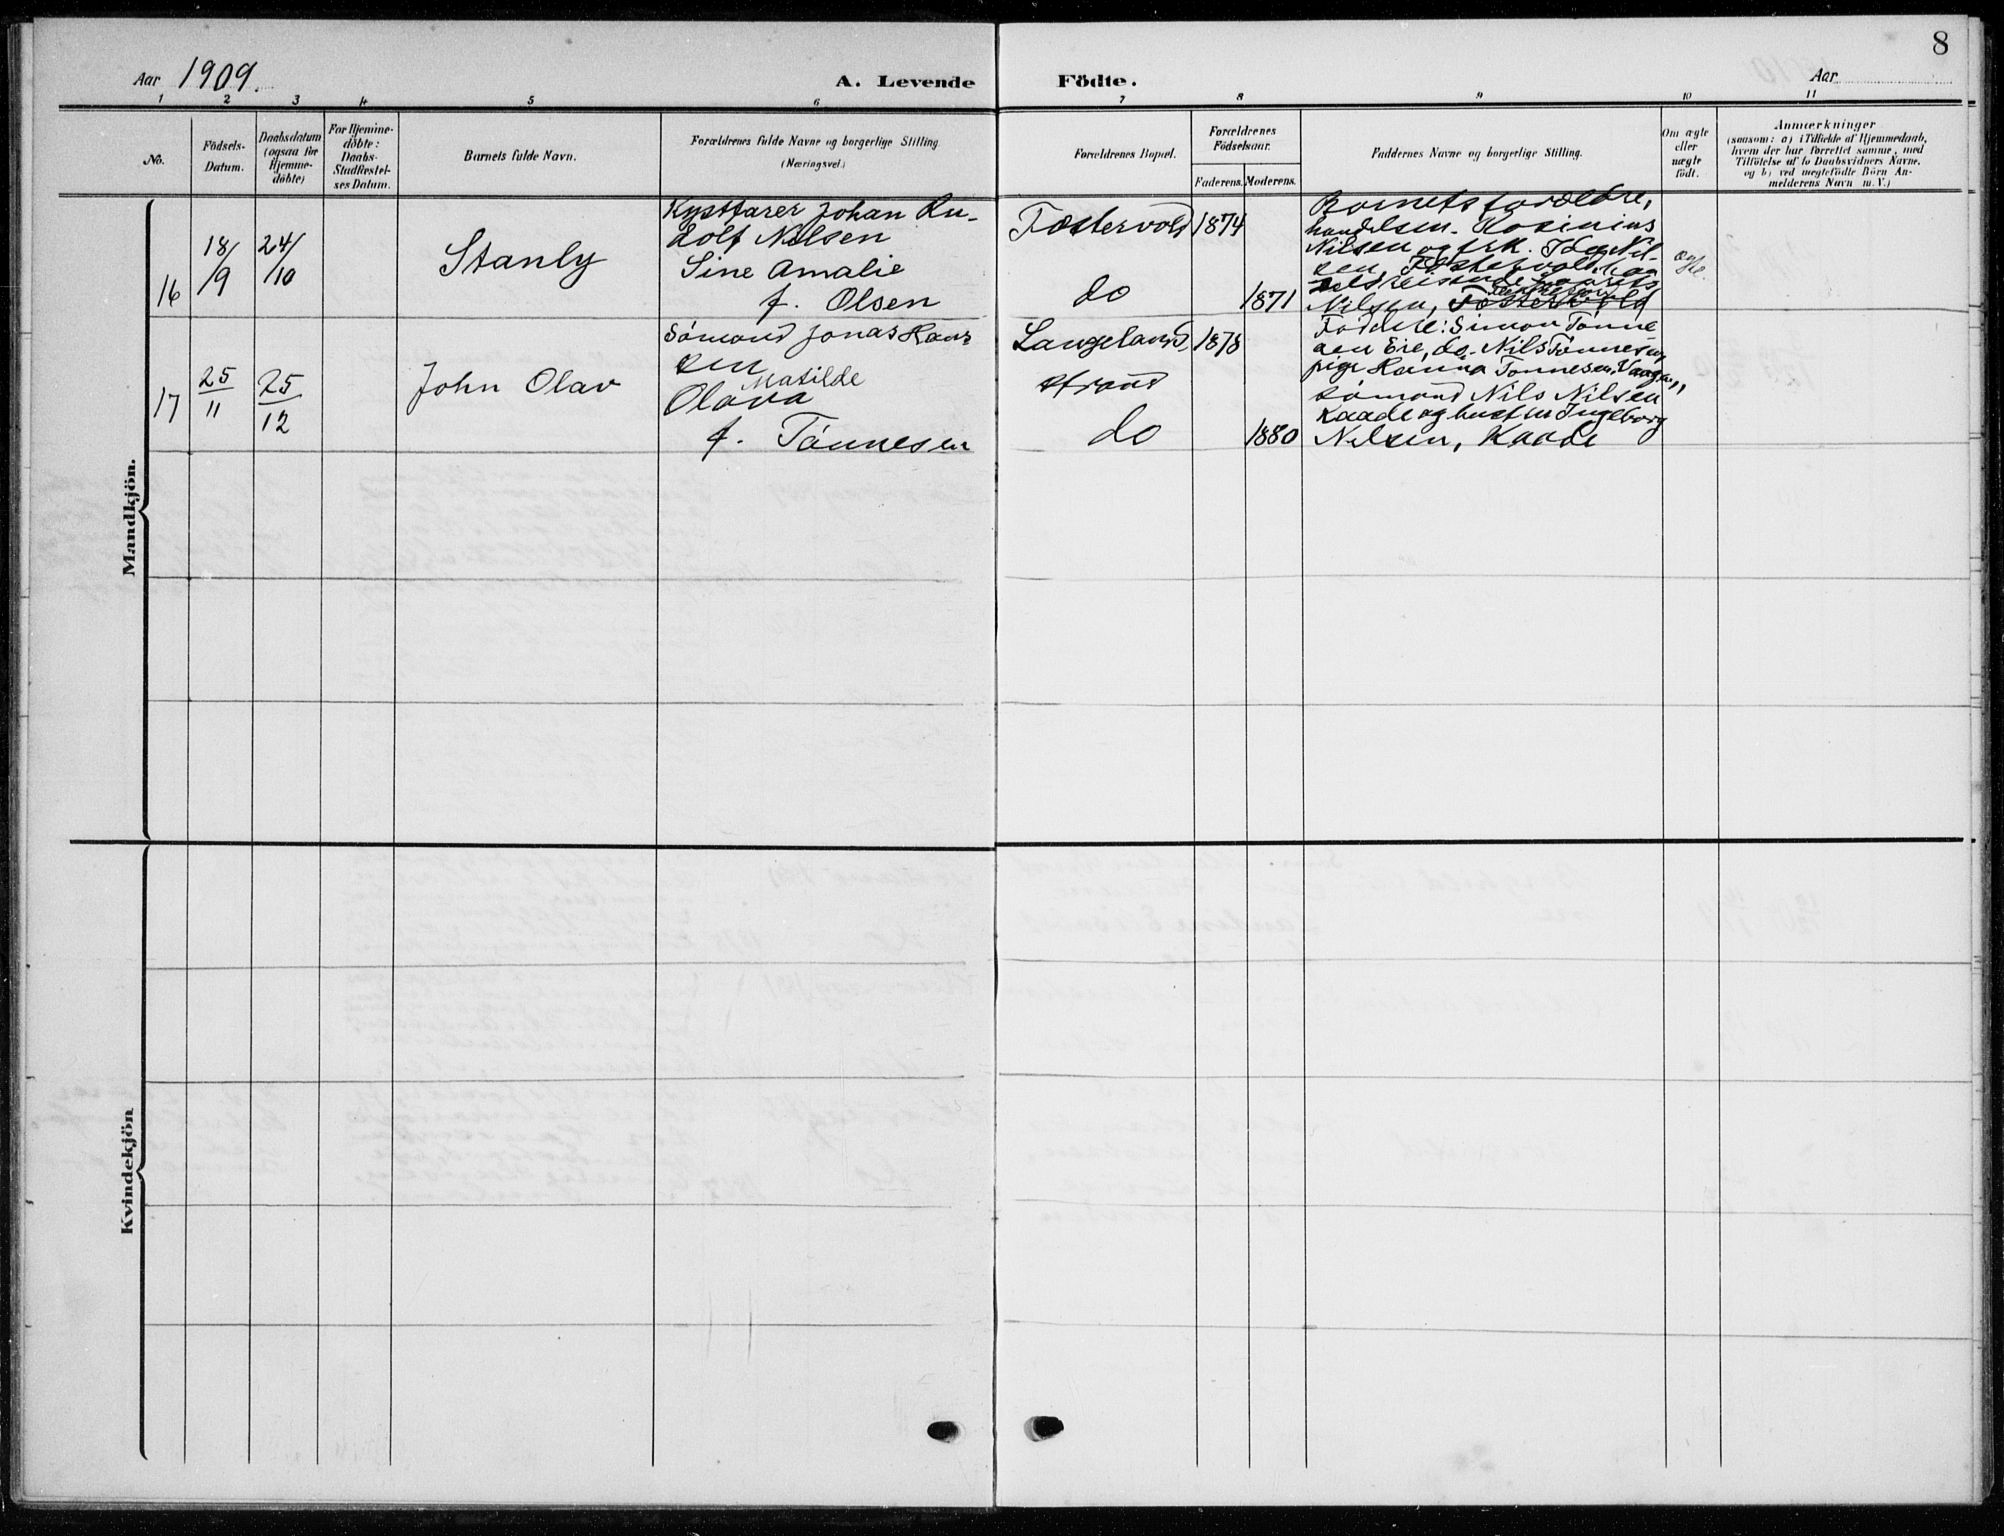 8
Aar 1909.
A. Levende Födte.
Aar
1 2 3 4 5 6 7 8 9 10 11
No.
Födsels-
Datum.
Daabsdatum
(ogsaa for
Hjemme-
döbte)
For Hjemme-
döbte:
Daabs-
Stadfæstel-
ses Datum.
Barnets fulde Navn.
Forældrenes fulde Navne og borgerlige Stilling
(Næringsvei.)
Forældrenes Bopæl.
Forældrenes
Födselsaar.
Faderens. Moderens.
Faddernes Navne og borgerlige Stilling.
Om ægte
eller
uægte
födt.
Anmærkninger
(saasom: a) i Tilfælde af Hjemmedaab,
hvem der har forrettet samme, med
Tilföielse af to Daabsvidners Navne,
og b) ved uægtefödte Börn An-
melderens Navn m. V.)
Mandkjön.
16
18/9
24/10
Stanly
Kystfarer Johan Ru-
dolf Nilsen
Sine Amalie
f. Olsen
Fostervold
do
1874
1871
Barnets forældre,
handelsm. Rosinius
Nilsen og frk. Ida Nil-
sen,
Nilsen, Fostervold
ægte.
17
25/11
25/12
John Olav
Sømand Jonas Han-
sen
Matilde
Olava
f. Tønnesen
Langeland,
strand
do
1878
1880
Faddere: Simon Tønne
sen Eie, do. Nils Tønnesen,
pige Hanna Tønnesen, Vaagen,
Sømand Nils Nilsen
Kaade og hustru Ingeborg
Nilsen, Kaade
Kvindekjön